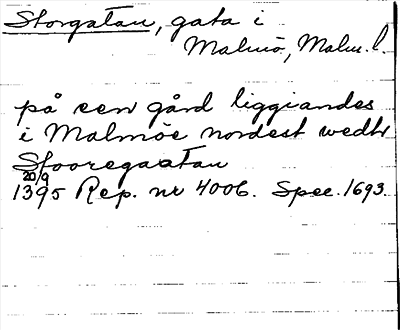 Storgatan, gata i
Malmö, Malm. l.
på een gård liggiandes
i Malmöe nordest wedh
Stooregaatan
20/9
1395 Rep. nr 4006. Spec. 1693.